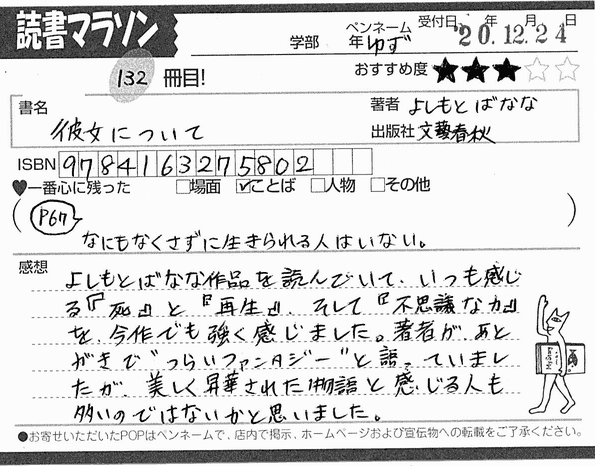 読書マラソン
学部 年 ペンネーム ゆず 受付日 年 月 日 '20.12.24
132 冊目! おすすめ度 ★★★☆☆
書名 彼女について
著者 よしもとばなな
出版社 文藝春秋
ISBN 9784163275802
♥一番心に残った □場面 ☑ことば □人物 □その他
(P67
なにもなくさずに生きられる人はいない。)
感想
よしもとばなな作品を読んでいて、いつも感じ
る『死』と『再生』、そして『不思議な力』
を、今作でも強く感じました。著者が、あと
がきで“つらいファンタジー”と語っていまし
たが、美しく昇華された物語と感じる人も
多いのではないかと思いました。
●お寄せいただいたPOPはペンネームで、店内で掲示、ホームページおよび宣伝物への転載をご了承ください。